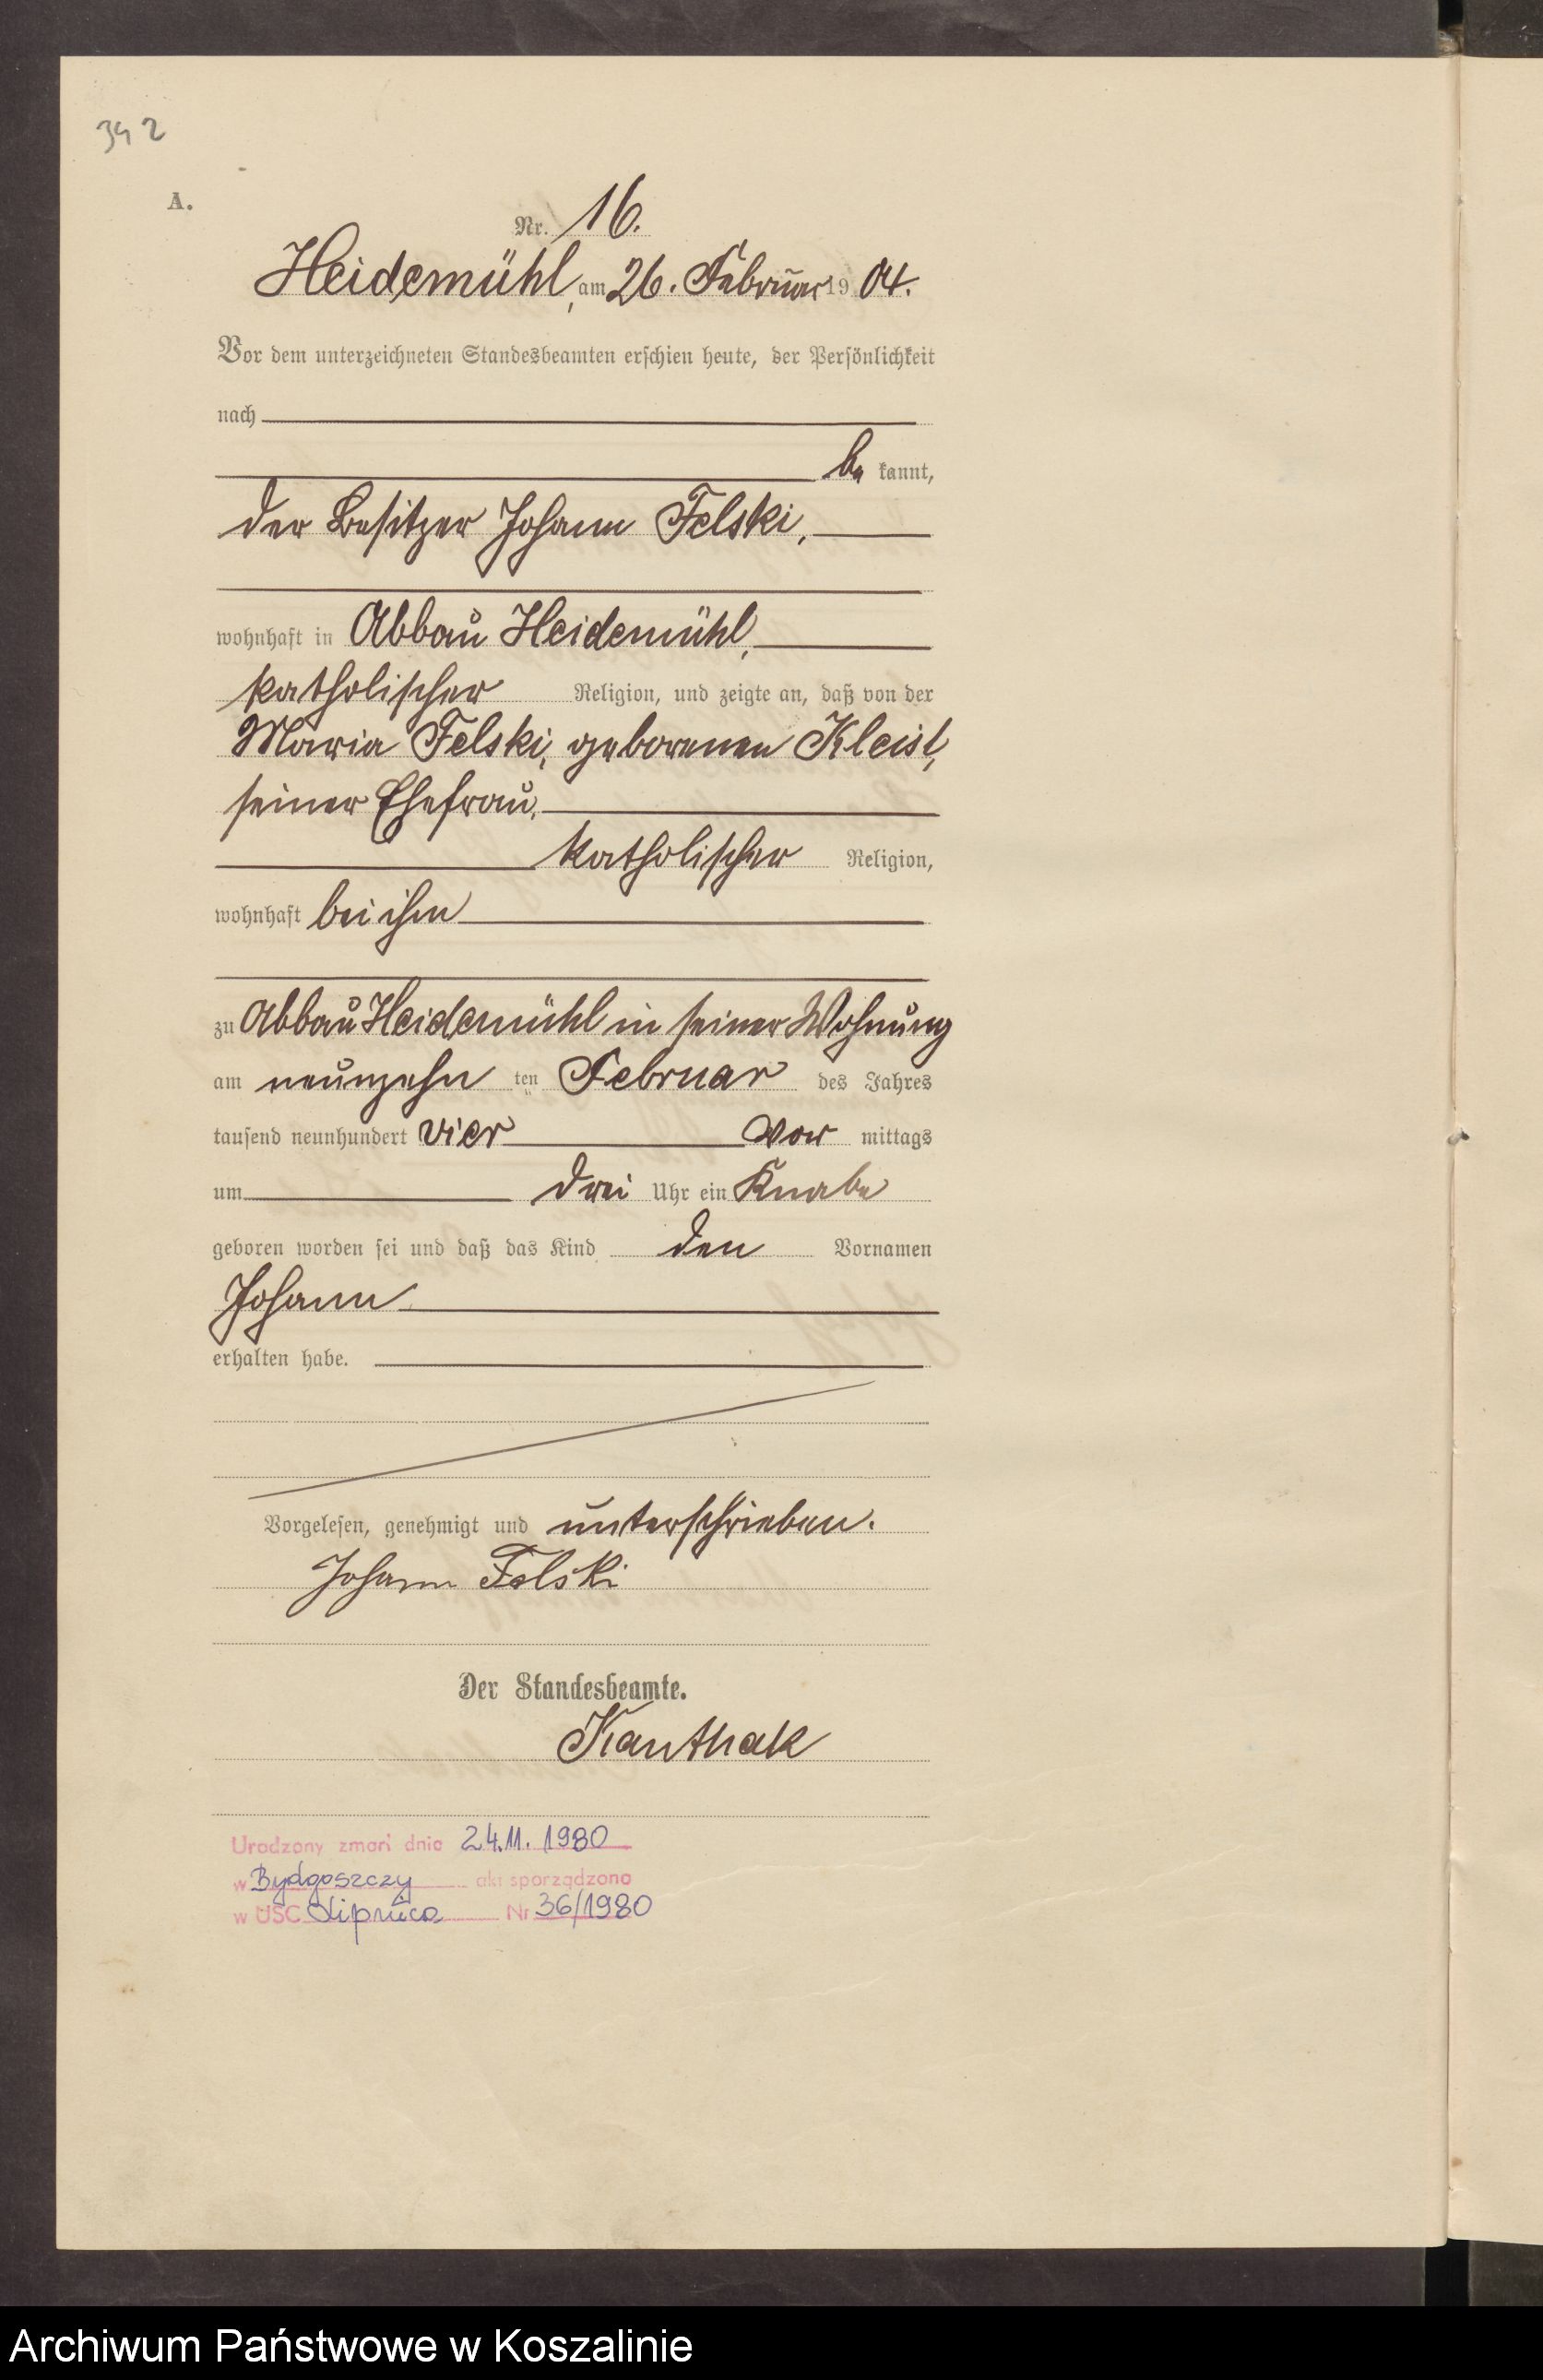 342
A.
Nr. 16.
Heidemühl, am 26. Februar 1904.
Vor dem unterzeichneten Standesbeamten erschien heute, der Persönlichkeit
nach
be kannt,
der Besitzer Johann Felski,
wohnhaft in Abbau Heidemühl,
katholischer Religion, und zeigte an, daß von der
Maria Felski, geborenen Kleist,
seiner Ehefrau,
katholischer Religion,
wohnhaft bei ihm
zu Abbau Heidemühl in seiner Wohnung
am neunzehn ten Februar des Jahres
tausend neunhundert vier Vor mittags
um drei Uhr ein Knabe
geboren worden sei und daß das Kind den Vornamen
Johann
erhalten habe.
Vorgelesen, genehmigt und unterschrieben.
Johann Felski
Der Standesbeamte.
Kanthak
Urodzony zmarł dnia 24.11.1980
w Bydgoszczy akt sporządzono
w USC Lipnica Nr 36/1980
Archiwum Państwowe w Koszalinie